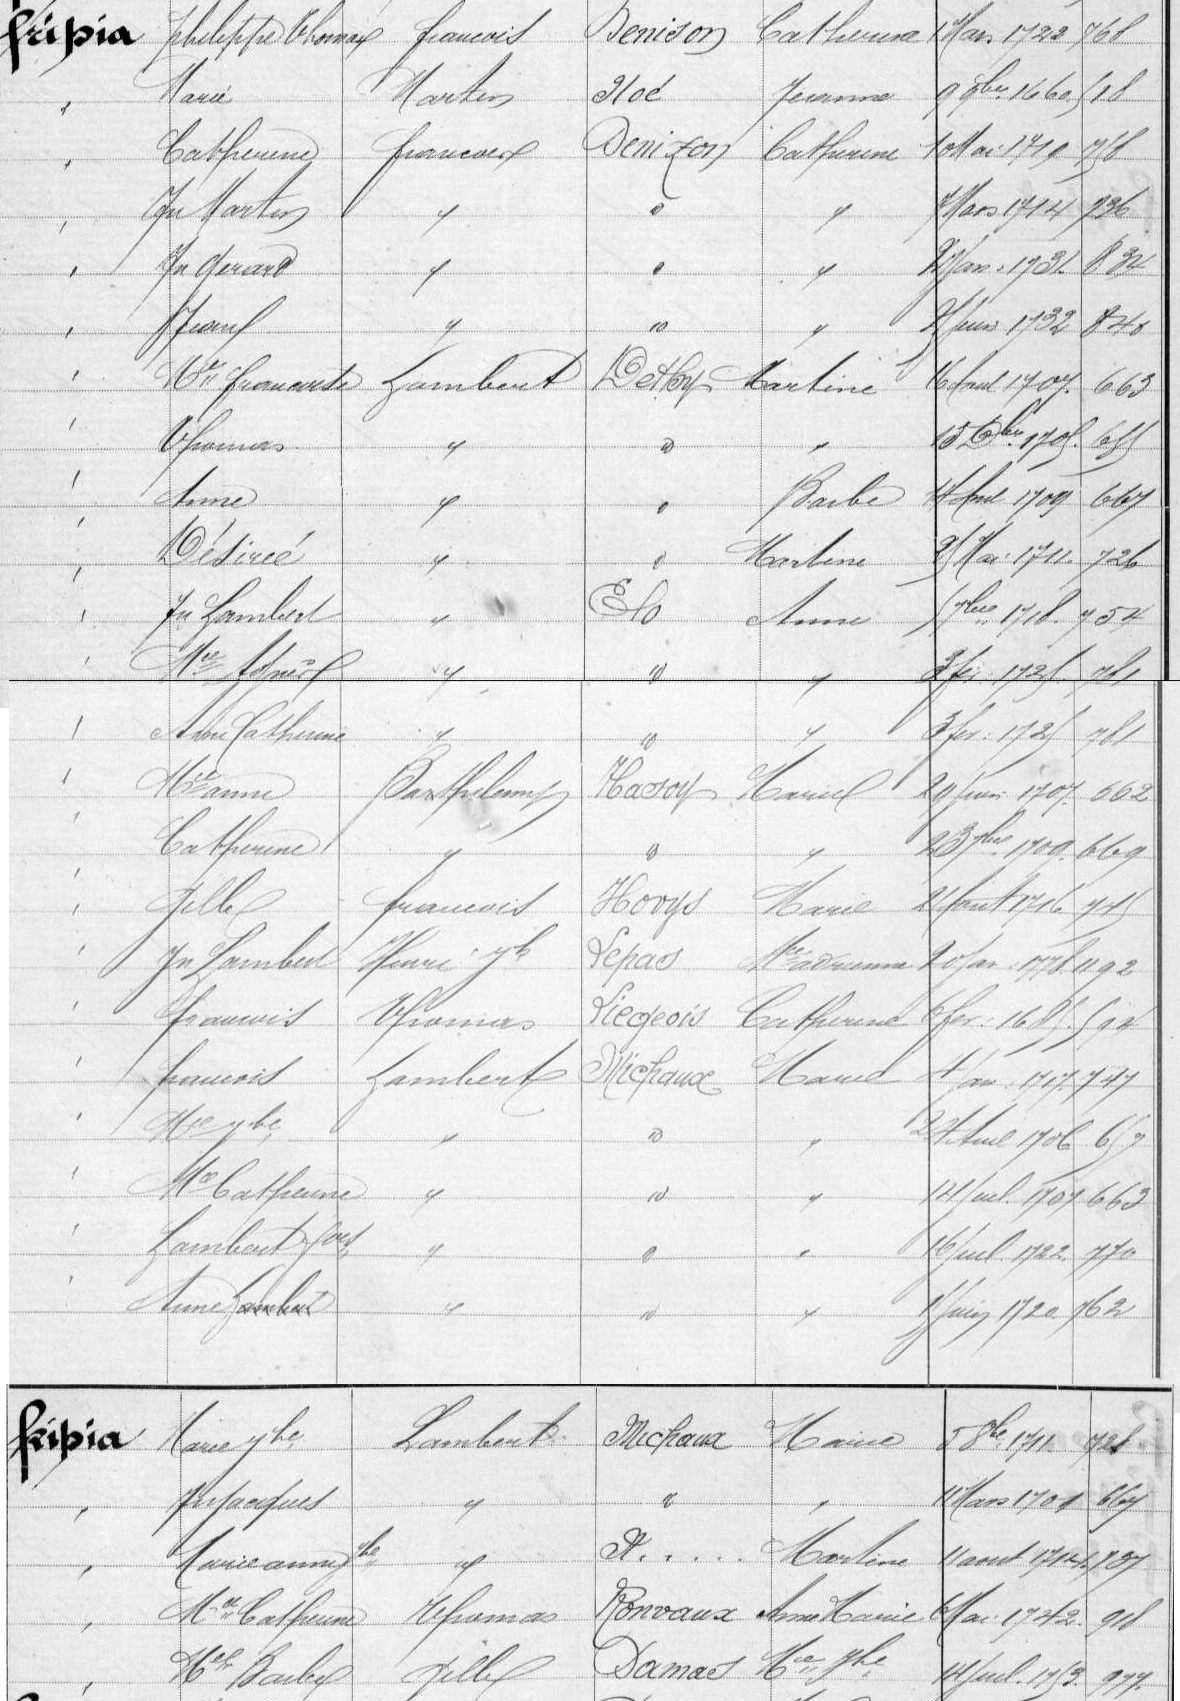 fripia Philippe Thomas francois Denison Catherine 1 Mars 1722 768
, Marie Martin Noé Jeanne 9 9bre 1660 518
, Catherine francois Denizon Catherine 1 Mai 1719 758
, Jn Martin " " " 7 Mars 1714 736
, Jn Gerard " " " Jan. 1731 834
, " " " 1732 840
, Mie francoise Lambert Dethy Martine 16 Avril 1707. 663
, Thomas " " " 15 1705. 655
, Anne " " Barbe 14 Avril 1709 667
, Désireé " " Martine 25 Mai 1711. 726
, Jn Lambert " Elo Anne 5 7bre 1718. 754
, Mie Agnès " " " 3 fev. 1725. 781
, Anne Catherine " " " 3 fev: 1725 781
, Mie anne Barthelemy Hacsoy Marie 29 1707. 662
, Catherine " " " 23 7bre 1709. 669
, Gille francois Hovys Marie 2 Aout 1716 745
, Jn Lambert Henri Jh Lepas Mie adrienne 20 Jan 1778 1192
, francois Thomas Liegeois Catherine 6 fev: 1685. 594
, francois Lambert Michaux Marie 4 Jan. 1717. 747
, Mie Jhe " " " 24 Avril 1706 657
, Mie Catherine " " " 14 Juil. 1707 663
, Lambert fois " " " 16 Juil. 1722. 770
, Anne Lambert " " " Juin 1720 762
fripia Marie Jhe Lambert Michaux Marie 5 8bre 1711 728
, Jn Jacques " " " 11 Mars 1709 667
, Marie anne Jhe " N..... Martine 11 aout 1714. 737
, Mie Catherine Thomas Ronvaux Anne Marie 6 Mai 1742. 918
, Mie Barbe Gille Damas Mie Jhe 14 Juil. 1753. 977.